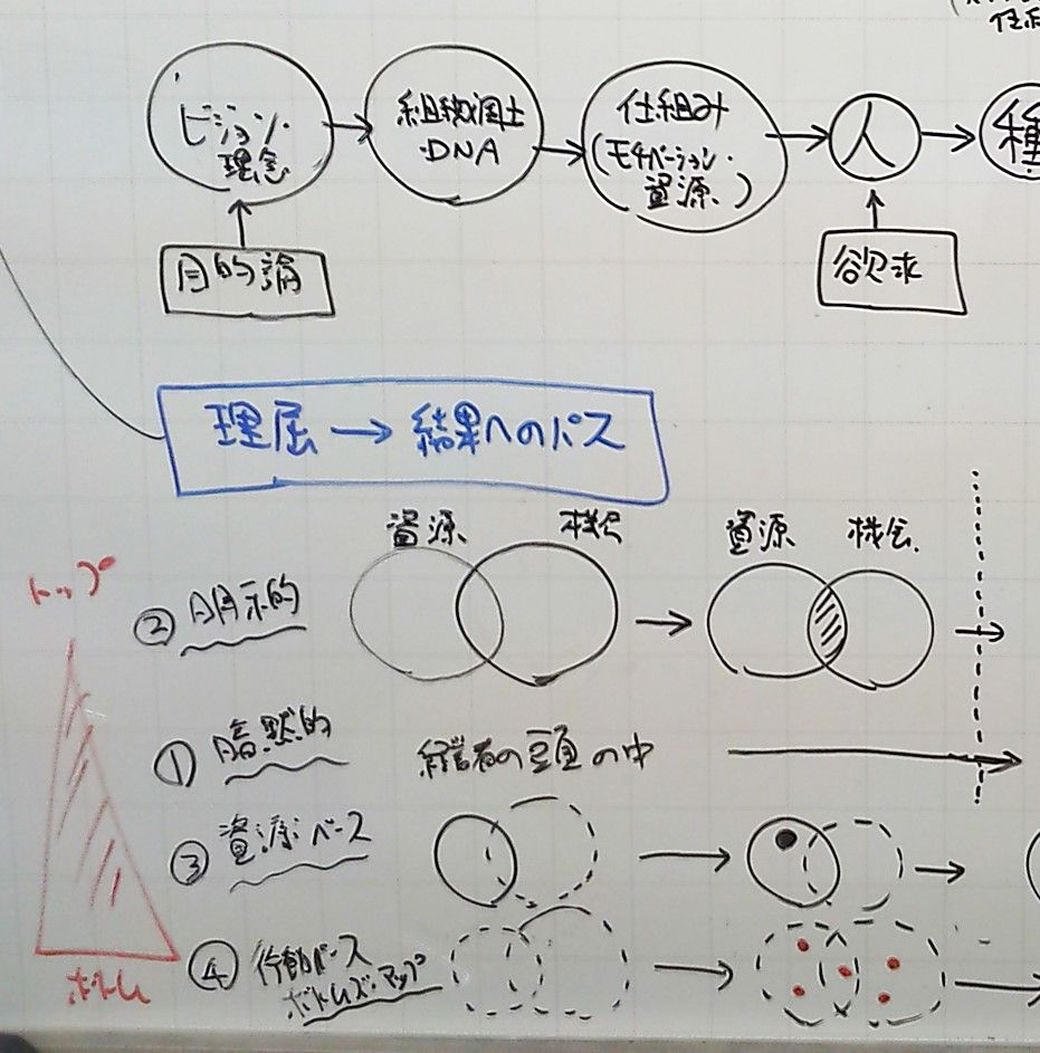 ビジョン・
理念
組織風土
・DNA
仕組み
(モチベーション・
資源)
人
目的論
欲求
理屈 → 結果へのパス
トップ
資源 機会
資源 機会
② 明示的
① 暗黙的 経営者の頭の中
③ 資源ベース
④ 行動ベース
ボトムズ・アップ
ボトム